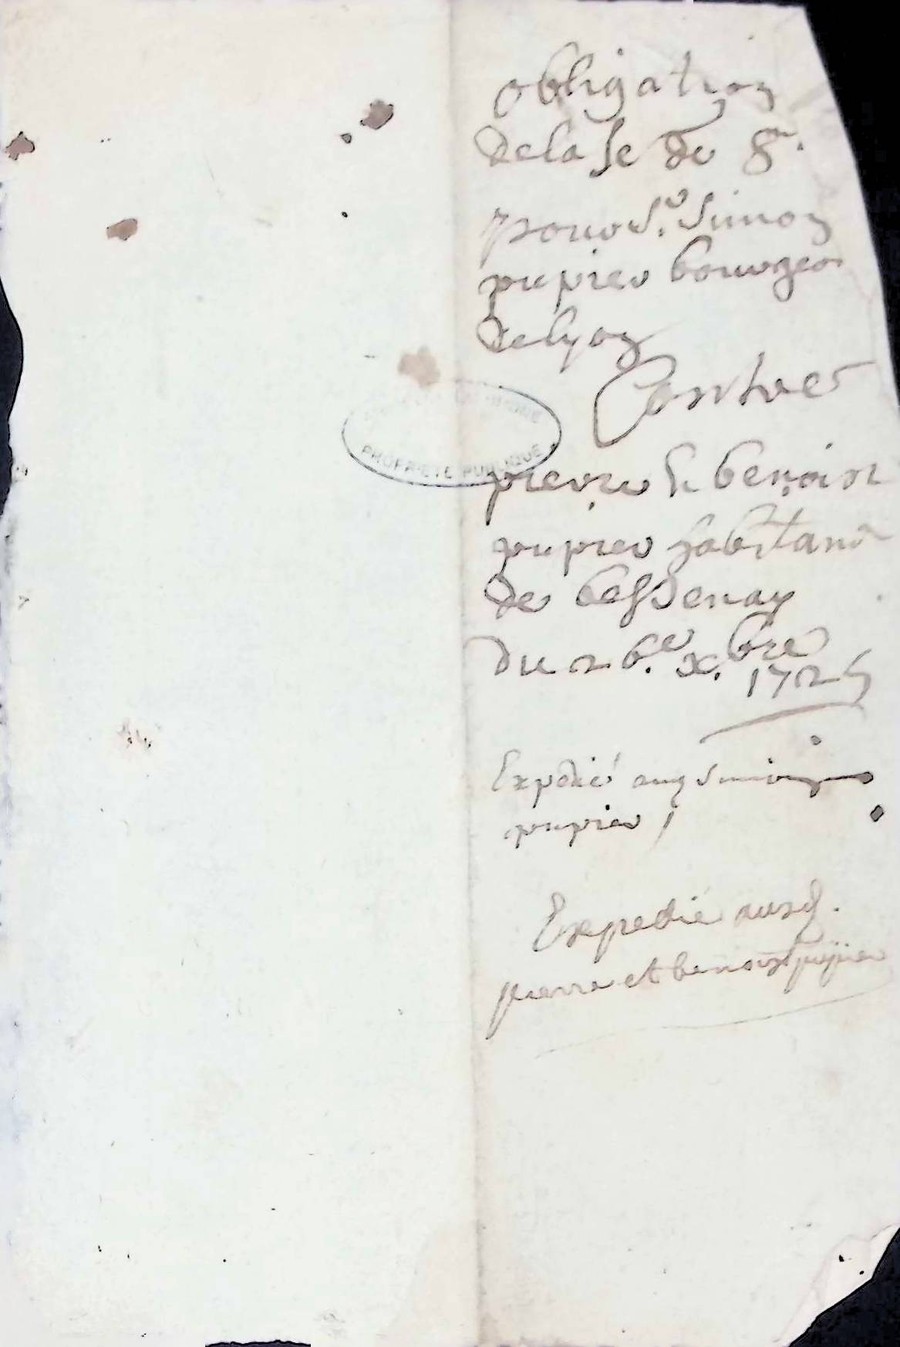 obligation
dela se de 8
pour Sr. Simon
pupier bourgeois
delyon
Contre
pierre & benoist
pupier habitant
de bessenay
du 26e. xbre
1725
Expedié aud Simon
pupier
Expedié ausd.
pierre et benoist pupier
PROPRIÉTÉ PUBLIQUE